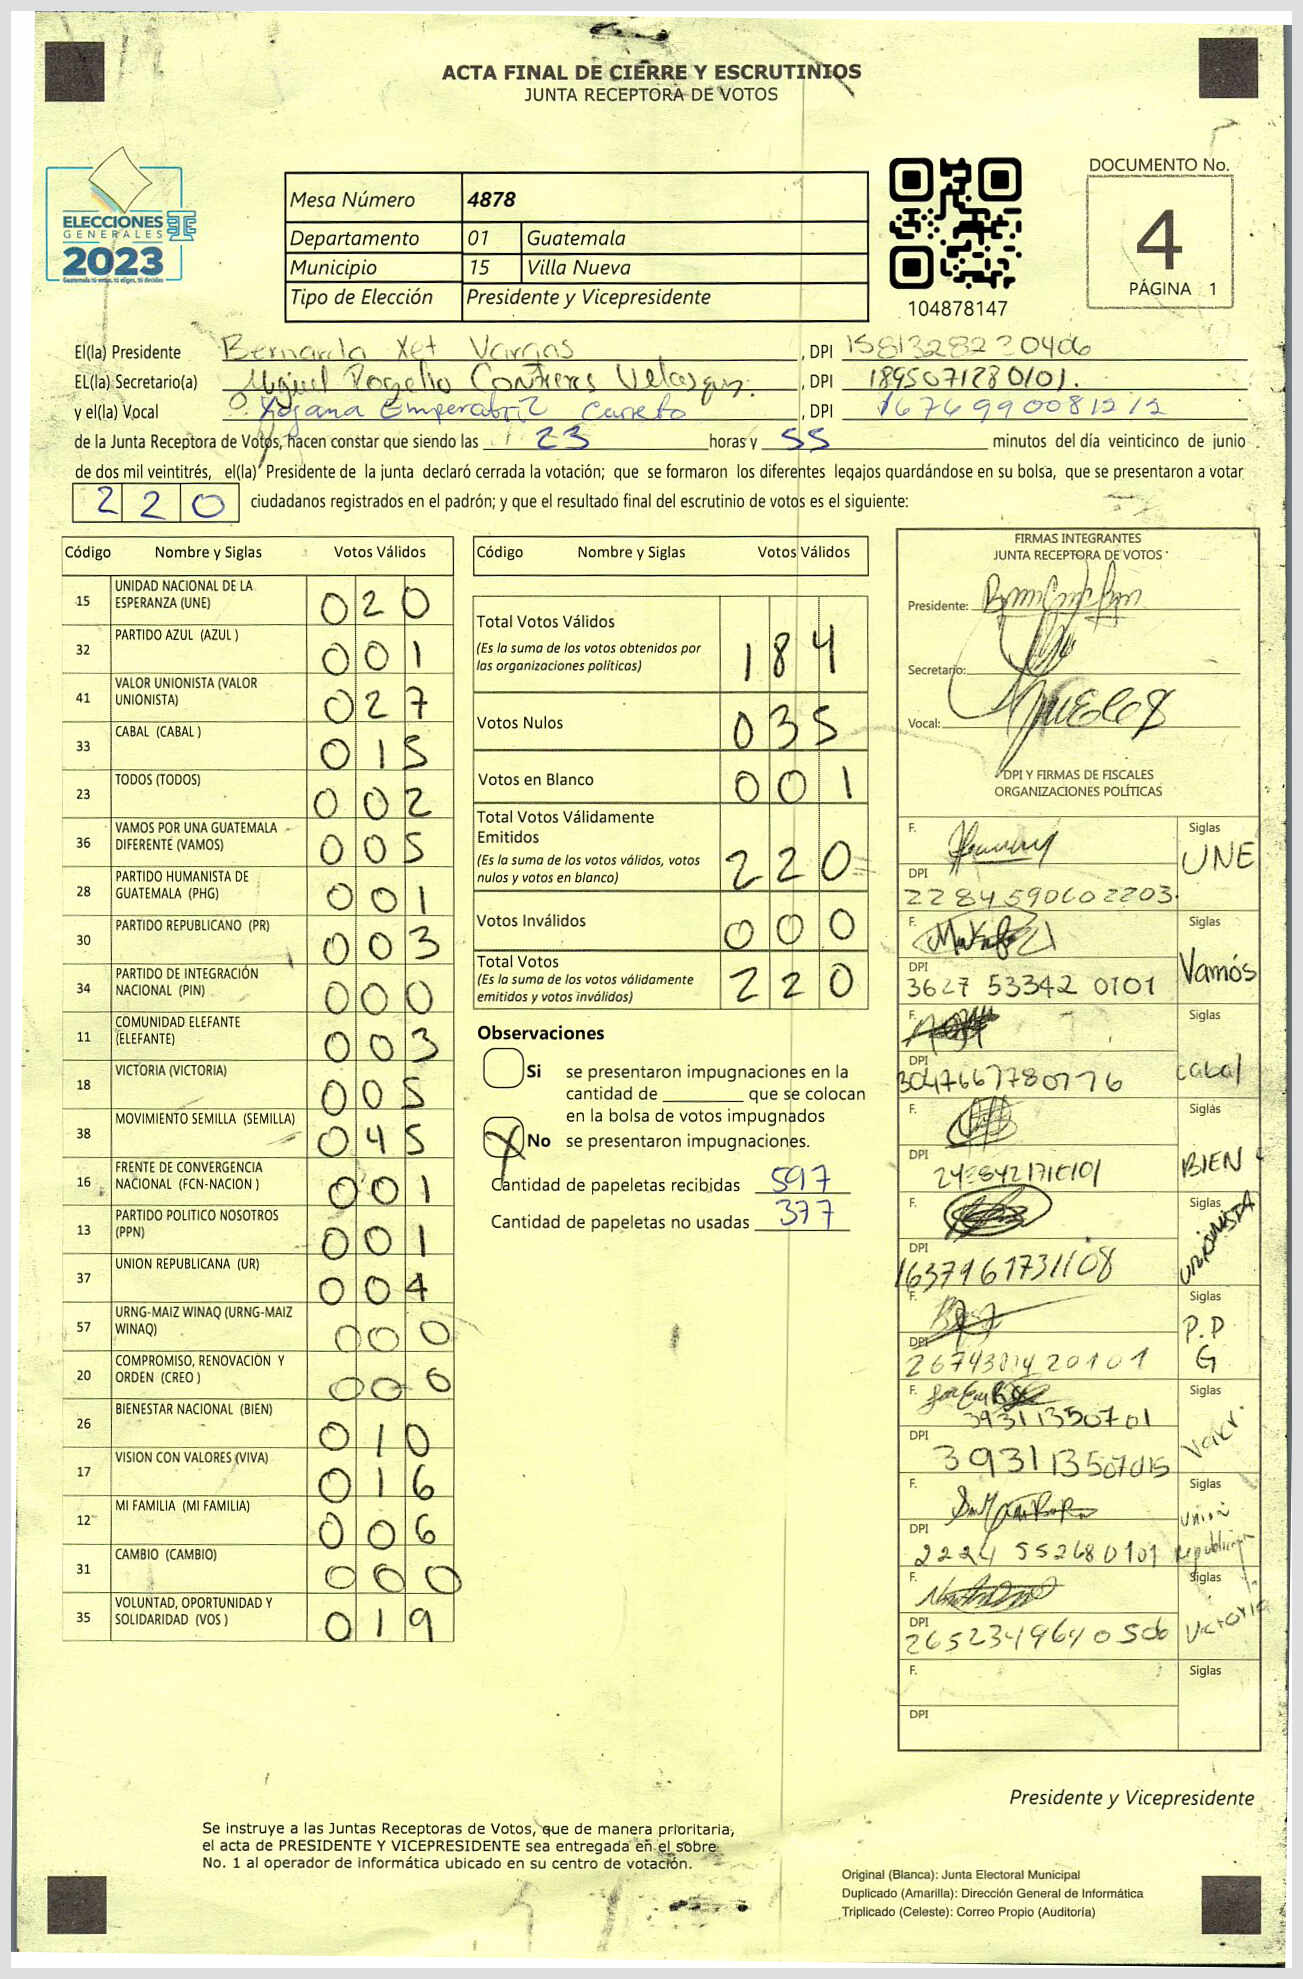 ACTA FINAL DE CIERRE Y ESCRUTINIOS
JUNTA RECEPTORA DE VOTOS
ELECCIONES
GENERALES
2023
Mesa Número 4878
Departamento 01 Guatemala
Municipio 15 Villa Nueva
Tipo de Elección Presidente y Vicepresidente
104878147
DOCUMENTO No.
4
PÁGINA 1
El(la) Presidente Bernarda Xet Vargas, DPI
EL(la) Secretario(a) Miguel Rogelio Contreras Velasquez, DPI 1895071280101.
y el(la) Vocal Emperatriz, DPI 1676990081212
de la Junta Receptora de Votos, hacen constar que siendo las 23 horas y 55 minutos del día veinticinco de junio
de dos mil veintitrés, el(la) Presidente de la junta declaró cerrada la votación; que se formaron los diferentes legajos quardándose en su bolsa, que se presentaron a votar
220 ciudadanos registrados en el padrón; y que el resultado final del escrutinio de votos es el siguiente:
Código Nombre y Siglas Votos Válidos
15 UNIDAD NACIONAL DE LA ESPERANZA (UNE) 020
32 PARTIDO AZUL (AZUL ) 001
41 VALOR UNIONISTA (VALOR UNIONISTA) 027
33 CABAL (CABAL ) 015
23 TODOS (TODOS) 002
36 VAMOS POR UNA GUATEMALA DIFERENTE (VAMOS) 005
28 PARTIDO HUMANISTA DE GUATEMALA (PHG) 001
30 PARTIDO REPUBLICANO (PR) 003
34 PARTIDO DE INTEGRACIÓN NACIONAL (PIN) 000
11 COMUNIDAD ELEFANTE (ELEFANTE) 003
18 VICTORIA (VICTORIA) 005
38 MOVIMIENTO SEMILLA (SEMILLA) 045
16 FRENTE DE CONVERGENCIA NACIONAL (FCN-NACION ) 001
13 PARTIDO POLITICO NOSOTROS (PPN) 001
37 UNION REPUBLICANA (UR) 004
57 URNG-MAIZ WINAQ (URNG-MAIZ WINAQ) 000
20 COMPROMISO, RENOVACION Y ORDEN (CREO ) 000
26 BIENESTAR NACIONAL (BIEN) 010
17 VISION CON VALORES (VIVA) 016
12 MI FAMILIA (MI FAMILIA) 006
31 CAMBIO (CAMBIO) 000
35 VOLUNTAD, OPORTUNIDAD Y SOLIDARIDAD (VOS ) 019
Código Nombre y Siglas Votos Válidos
Total Votos Válidos 184
(Es la suma de los votos obtenidos por
las organizaciones políticas)
Votos Nulos 035
Votos en Blanco 001
Total Votos Válidamente
Emitidos 220
(Es la suma de los votos válidos, votos
nulos y votos en blanco)
Votos Inválidos 000
Total Votos 220
(Es la suma de los votos válidamente
emitidos y votos inválidos)
Observaciones
Si se presentaron impugnaciones en la
cantidad de ________ que se colocan
en la bolsa de votos impugnados
X No se presentaron impugnaciones.
Cantidad de papeletas recibidas 597
Cantidad de papeletas no usadas 377
FIRMAS INTEGRANTES
JUNTA RECEPTORA DE VOTOS
Presidente:
Secretario:
Vocal:
DPI Y FIRMAS DE FISCALES
ORGANIZACIONES POLÍTICAS
F. Siglas UNE
DPI 2284590602203
F. Siglas Vamos
DPI 3627 53342 0101
F. Siglas Cabal
DPI
F. Siglas BIEN
DPI
F. Siglas UNIONISTA
DPI 1637961731108
F. Siglas P.P
G
DPI
F. Siglas Valor.
39311350701
DPI
F. Siglas Union Republicana
DPI 2224 552680101
F. Siglas Victoria
DPI
F. Siglas
DPI
Presidente y Vicepresidente
Se instruye a las Juntas Receptoras de Votos, que de manera prioritaria,
el acta de PRESIDENTE Y VICEPRESIDENTE sea entregada en el sobre
No. 1 al operador de informática ubicado en su centro de votación.
Original (Blanca): Junta Electoral Municipal
Duplicado (Amarilla): Dirección General de Informática
Triplicado (Celeste): Correo Propio (Auditoría)